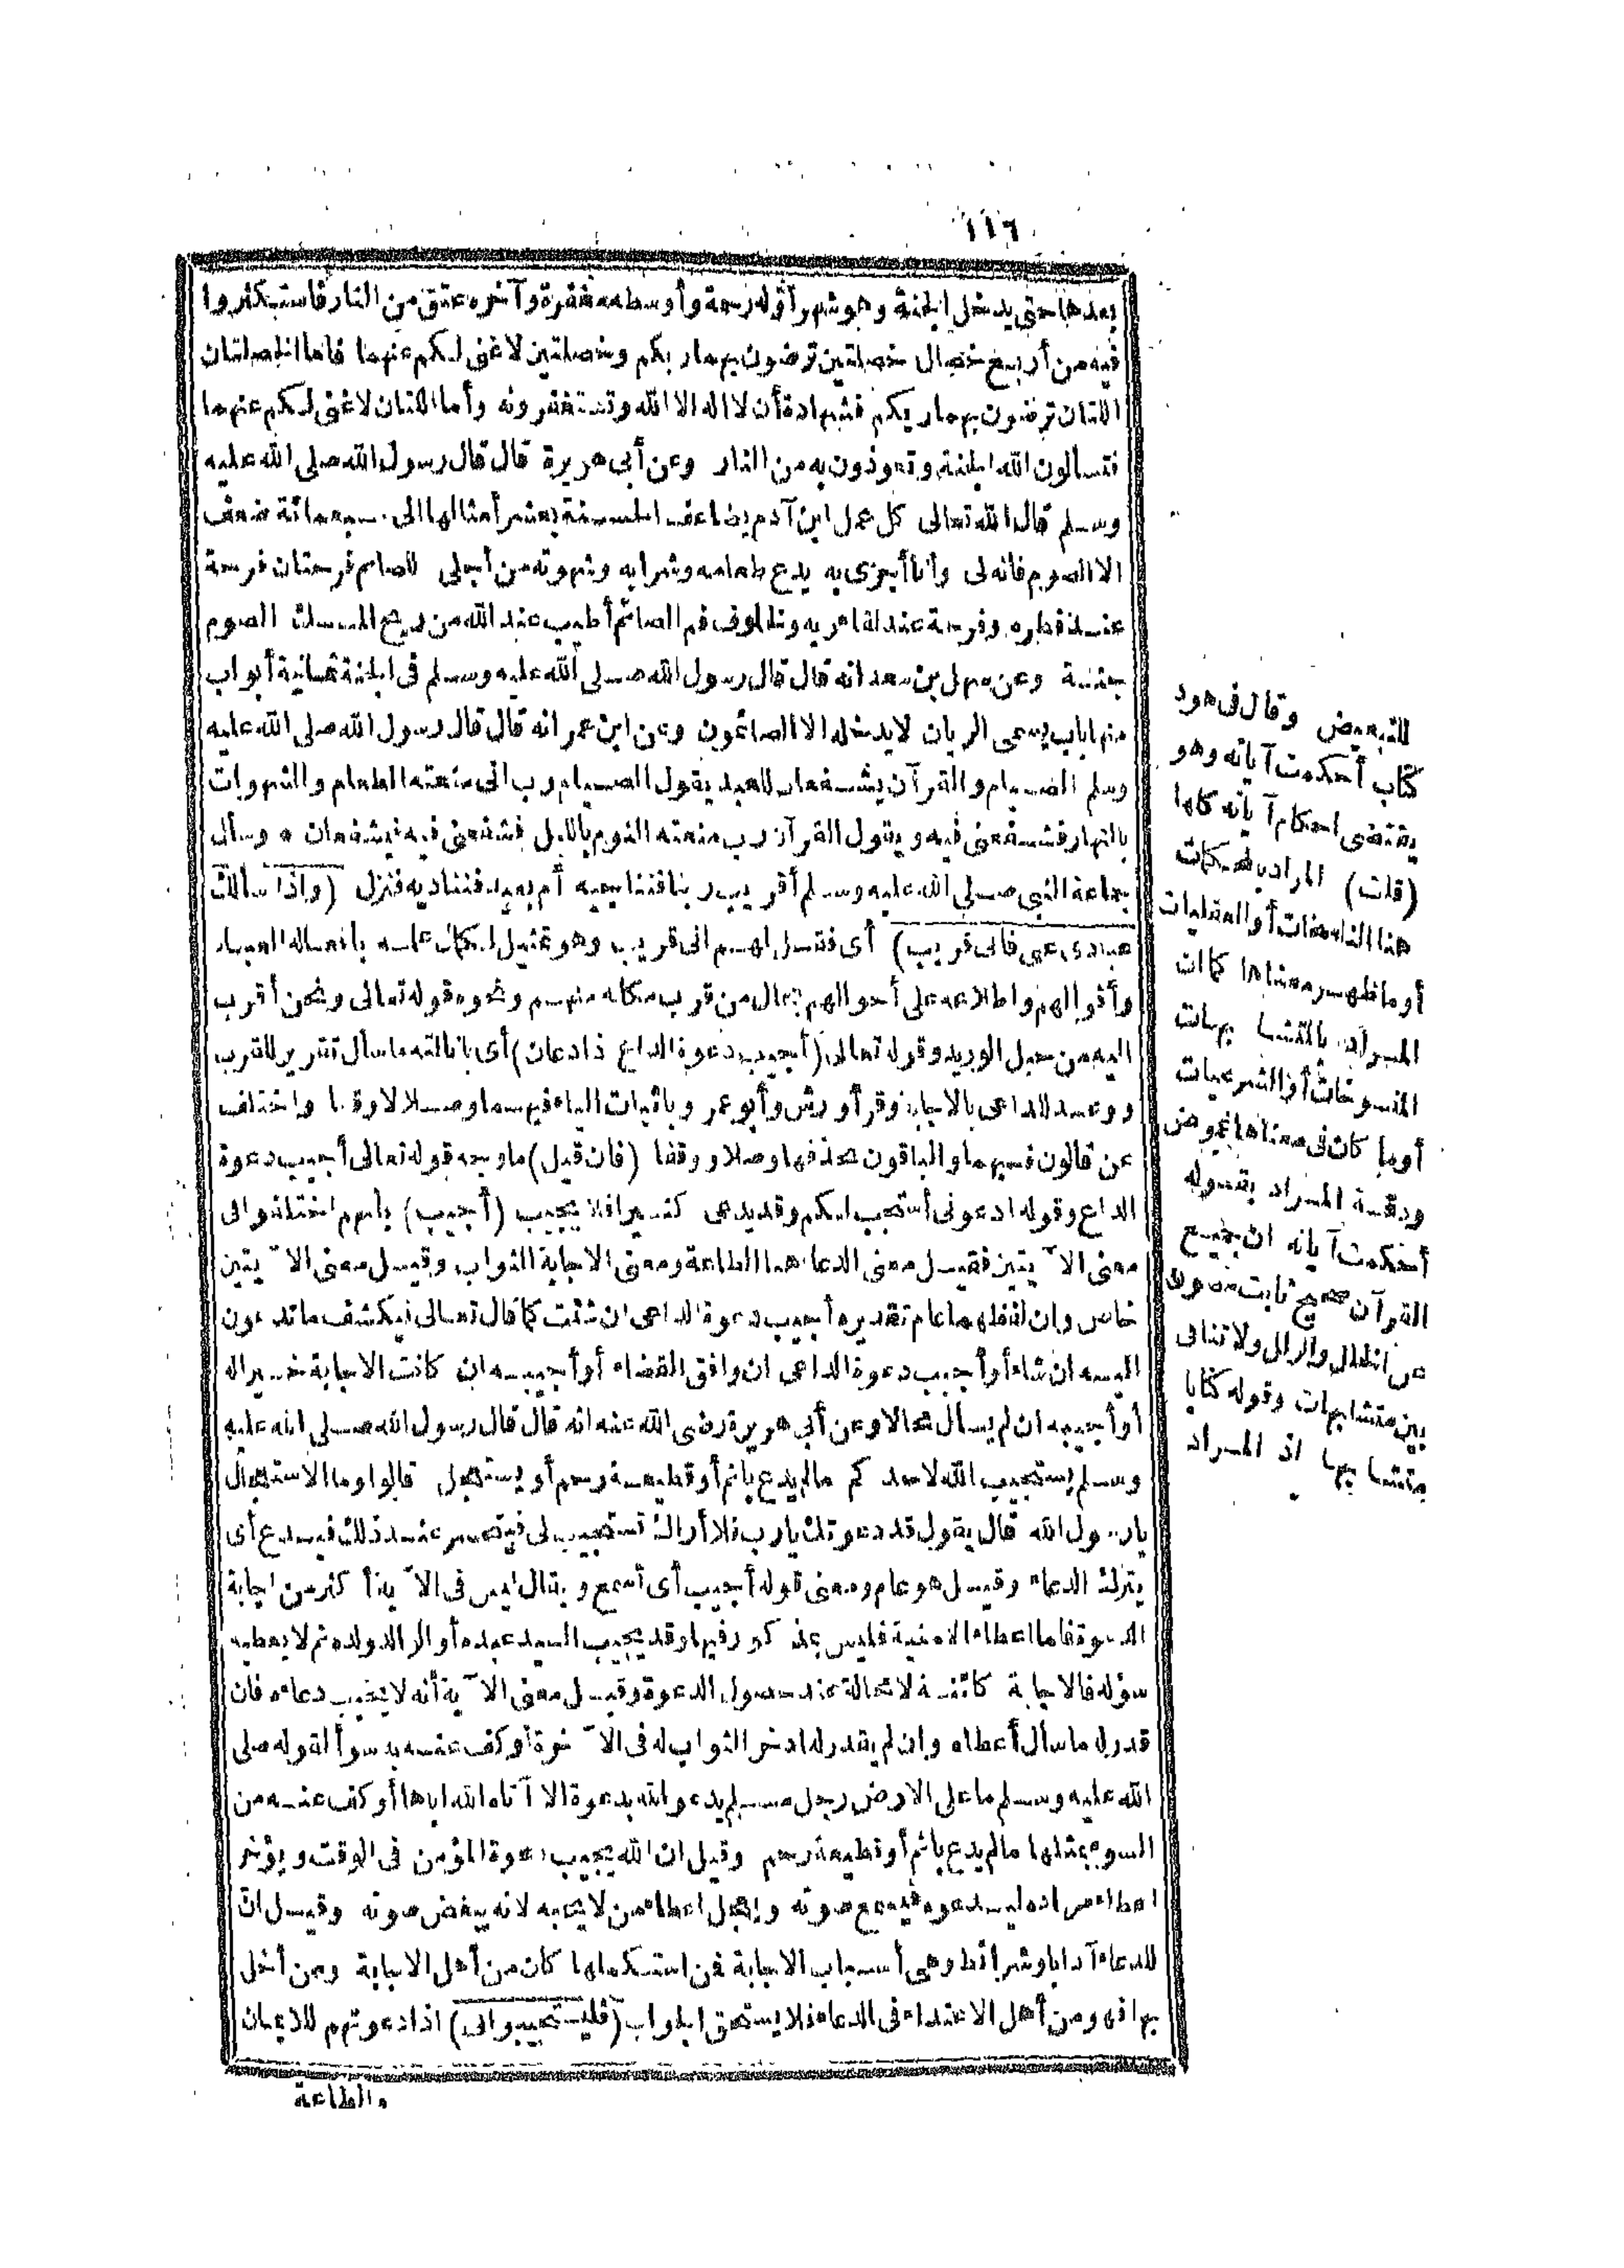 ١١٦
بعدها حتى يدخل الجنة وهو شهر أوله رحمة وأوسطه مغفرة وآخره عتق من النار فاستكثروا
فيه من أربع خصال خصلتين ترضون بهما ربكم وخصلتين لا غنى لكم عنهما فاما الخصلتان
اللتان ترضون بهما ربكم فشهادة أن لا اله الا الله وتستغفرونه وأما اللتان لا غنى لكم عنهما
فتسالون الله الجنة وتعوذون به من النار وعن أبى هريرة قال قال رسول الله صلى الله عليه
وسلم قال الله تعالى كل عمل ابن آدم يضاعف الحسنة بعشر أمثالها الى سبعمائة ضعف
الا الصوم فانه لى وأنا أجزى به يدع طعامه وشرابه وشهوته من أجلى للصائم فرحتان فرحة
عند فطره وفرحة عند لقاء ربه وخلوف فم الصائم أطيب عند الله من ريح المسك الصوم
جنة وعن سهل بن سعد انه قال قال رسول الله صلى الله عليه وسلم فى الجنة ثمانية أبواب
منها باب يسمى الريان لا يدخله الا الصائمون وعن ابن عمر انه قال قال رسول الله صلى الله عليه
وسلم الصيام والقرآن يشفعان للعبد يقول الصيام رب انى منعته الطعام والشهوات
بالنهار فشفعنى فيه ويقول القرآن رب منعته النوم بالليل فشفعنى فيه فيشفعان * وسأل
جماعة النبى صلى الله عليه وسلم أقريب ربنا فنناجيه أم بعيد فنناديه فنزل (واذا سألك
عبادى عنى فانى قريب) أى فقل لهم انى قريب وهو تمثيل لكمال علمه بافعال العباد
وأقوالهم واطلاعه على أحوالهم بحال من قرب مكانه منهم ونحوه قوله تعالى ونحن أقرب
اليه من حبل الوريد وقوله تعالى (أجيب دعوة الداع اذا دعان) أى بانالته ما سأل تقرير للقرب
ووعد للداعى بالاجابة وقرأ ورش وأبو عمرو باثبات الياء فيهما وصلا لا وقفا واختلف
عن قالون فيهما والباقون بحذفها وصلا ووقفا (فان قيل) ما وجه قوله تعالى أجيب دعوة
الداع وقوله ادعونى أستجب لكم وقد يدعى كثيرا فلا يجيب (أجيب) بأنهم اختلفوا فى
معنى الآيتين فقيل معنى الدعاء هنا الطاعة ومعنى الاجابة الثواب وقيل معنى الآيتين
خاص وان لفظهما عام تقديره أجيب دعوة الداعى ان شئت كما قال تعالى فيكشف ما تدعون
اليه ان شاء أو أجيب دعوة الداعى ان وافق القضاء أو أجيبه ان كانت الاجابة خيرا له
أو أجيبه ان لم يسأل محالا وعن أبى هريرة رضى الله عنه انه قال قال رسول الله صلى الله عليه
وسلم يستجيب الله لاحدكم ما لم يدع باثم أو قطيعة رحم أو يستعجل قالوا وما الاستعجال
يا رسول الله قال يقول قد دعوتك يا رب فلا أراك تستجيب لى فيتحسر عند ذلك فيدع أى
يترك الدعاء وقيل هو عام ومعنى قوله أجيب أى أسمع ويقال ليس فى الآية أكثر من اجابة
الدعوة فاما اعطاء الامنية فليس بمذكور فيها وقد يجيب السيد عبده أو الوالد ولده ثم لا يعطيه
سؤله فالاجابة كائنة لا محالة عند حصول الدعوة وقيل معنى الآية أنه لا يخيب دعاءه فان
قدر له ما سأل أعطاه وان لم يقدر له ادخر الثواب له فى الآخرة أو كف عنه به سوأ لقوله صلى
الله عليه وسلم ما على الارض رجل مسلم يدعو الله بدعوة الا آتاه الله اياها أو كف عنه من
السوء بمثلها ما لم يدع باثم أو قطيعة رحم وقيل ان الله يجيب دعوة المؤمن فى الوقت ويؤخر
اعطاء مراده ليدعوه فيسمع صوته ويعجل اعطاء من لا يحبه لانه يبغض صوته وقيل ان
للدعاء آدابا وشرائط وهى أسباب الاجابة فمن استكملها كان من أهل الاجابة ومن أخل
بها فهو من أهل الاعتداء فى الدعاء فلا يستحق الجواب (فليستجيبوا لى) اذا دعوتهم للايمان
والطاعة
للتبعيض وقال فى هود
كتاب أحكمت آياته وهو
يقتضى احكام آياته كلها
(قلت) المراد بالمحكمات
هنا الناسخات أو العقليات
أو ما ظهر معناها كما ان
المراد بالمتشابهات
المنسوخات أو الشرعيات
أو ما كان فى معناها غموض
ودقة المراد بقوله
أحكمت آياته ان جميع
القرآن صحيح ثابت مصون
عن الخلل والزلل ولا تنافى
بين متشابهات وقوله كتابا
متشابها اذ المراد